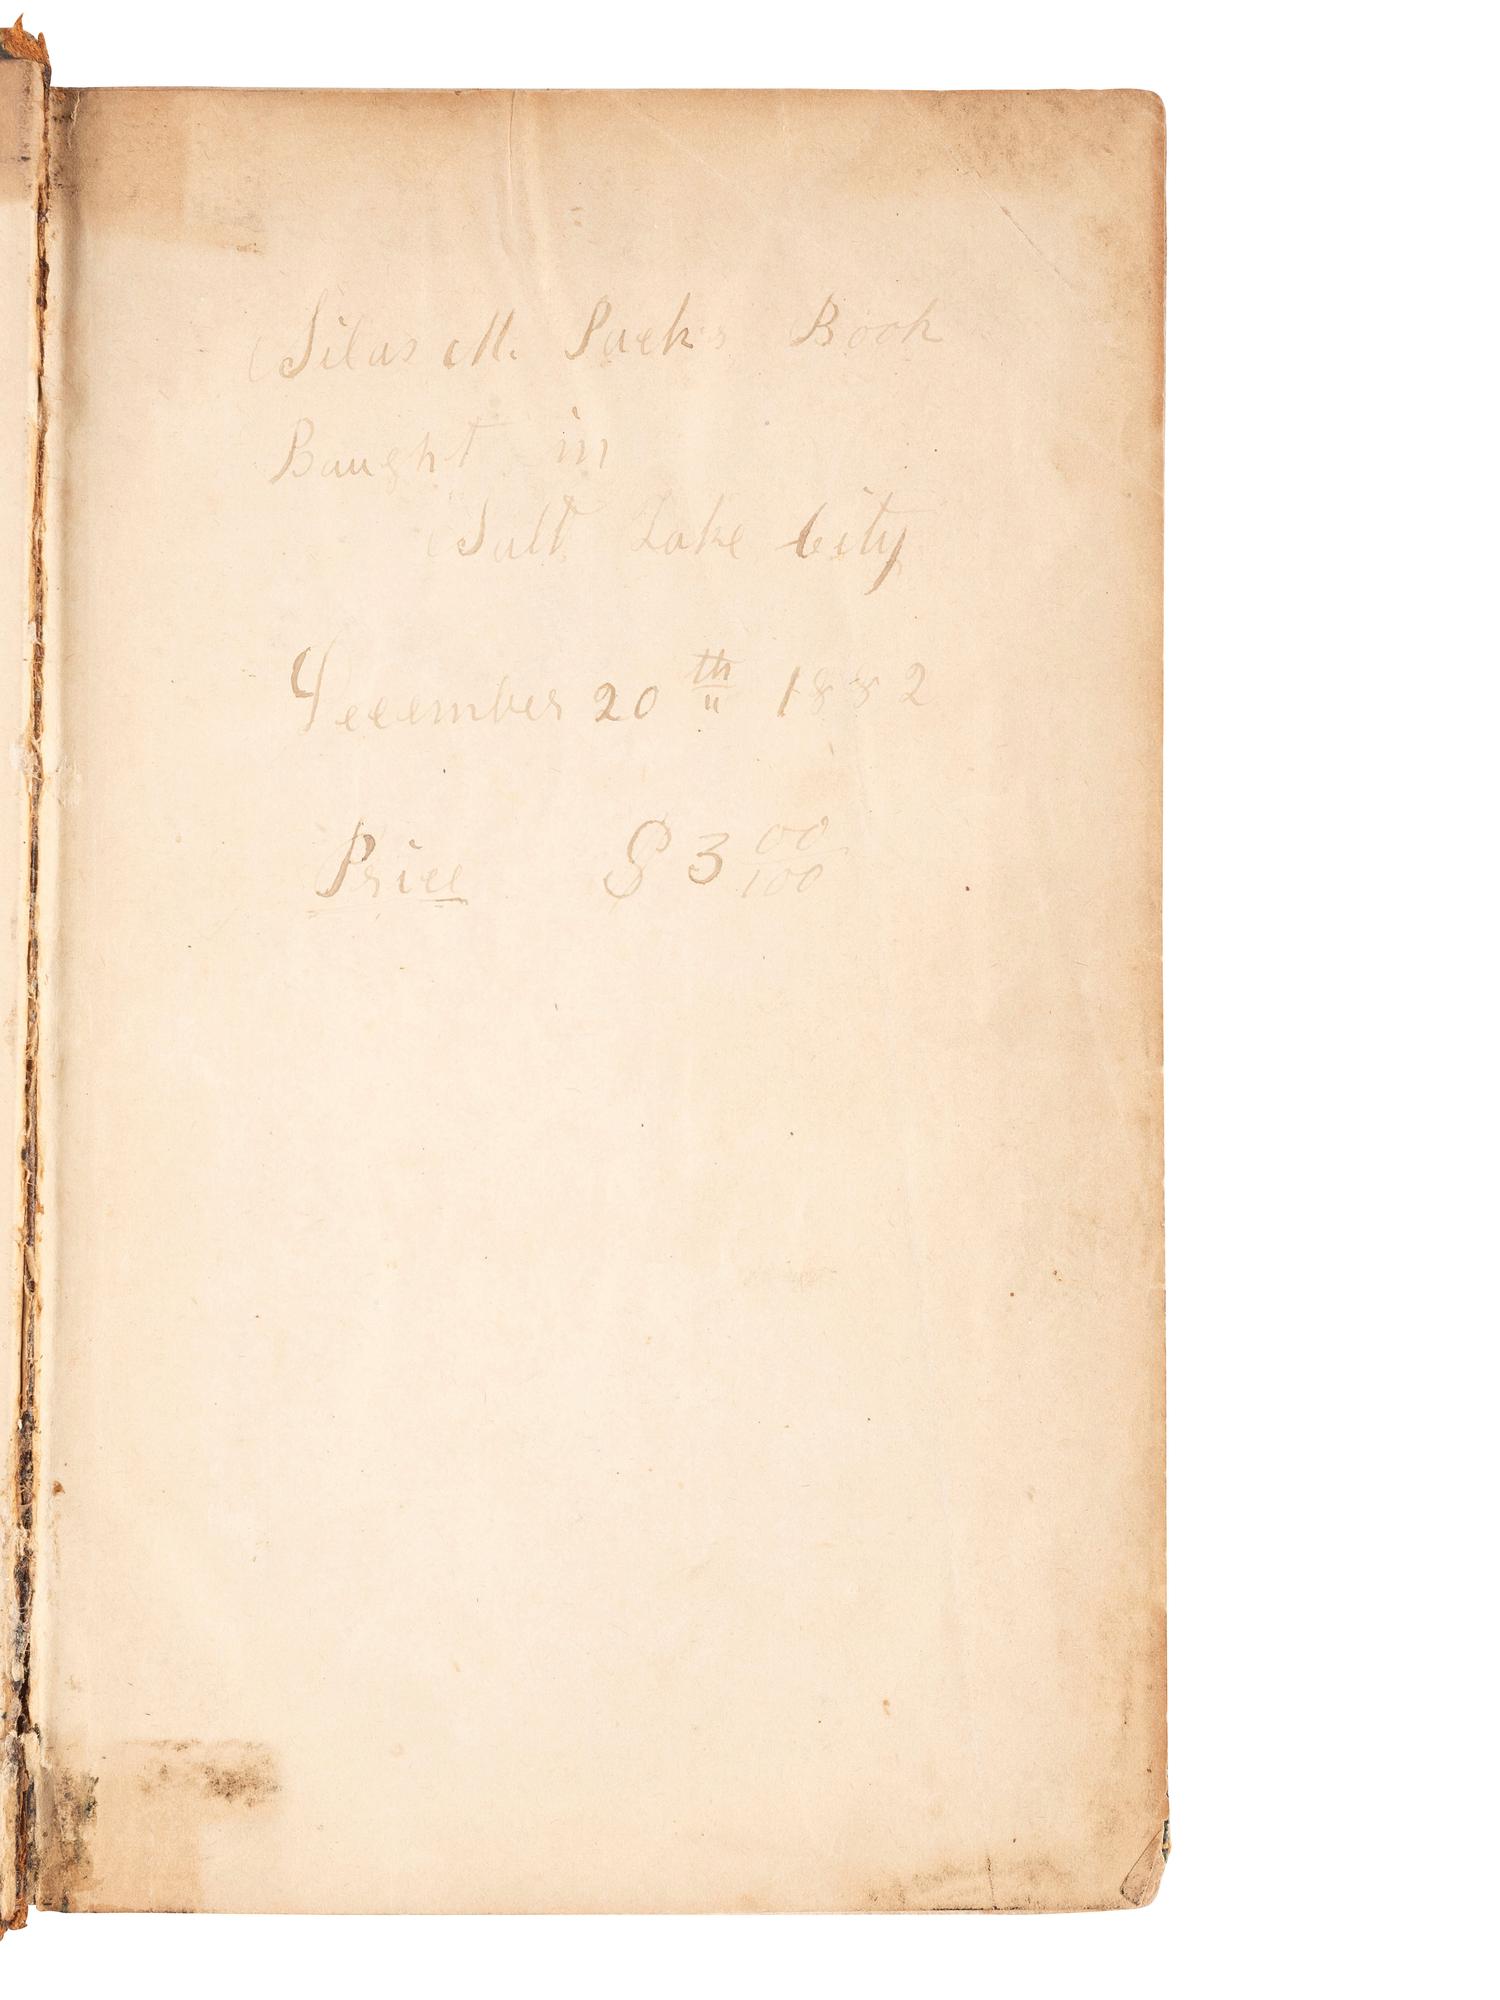 Silas M. Pack's Book
Baught in
Salt Lake City
December 20th 1882
Price $3 00/100